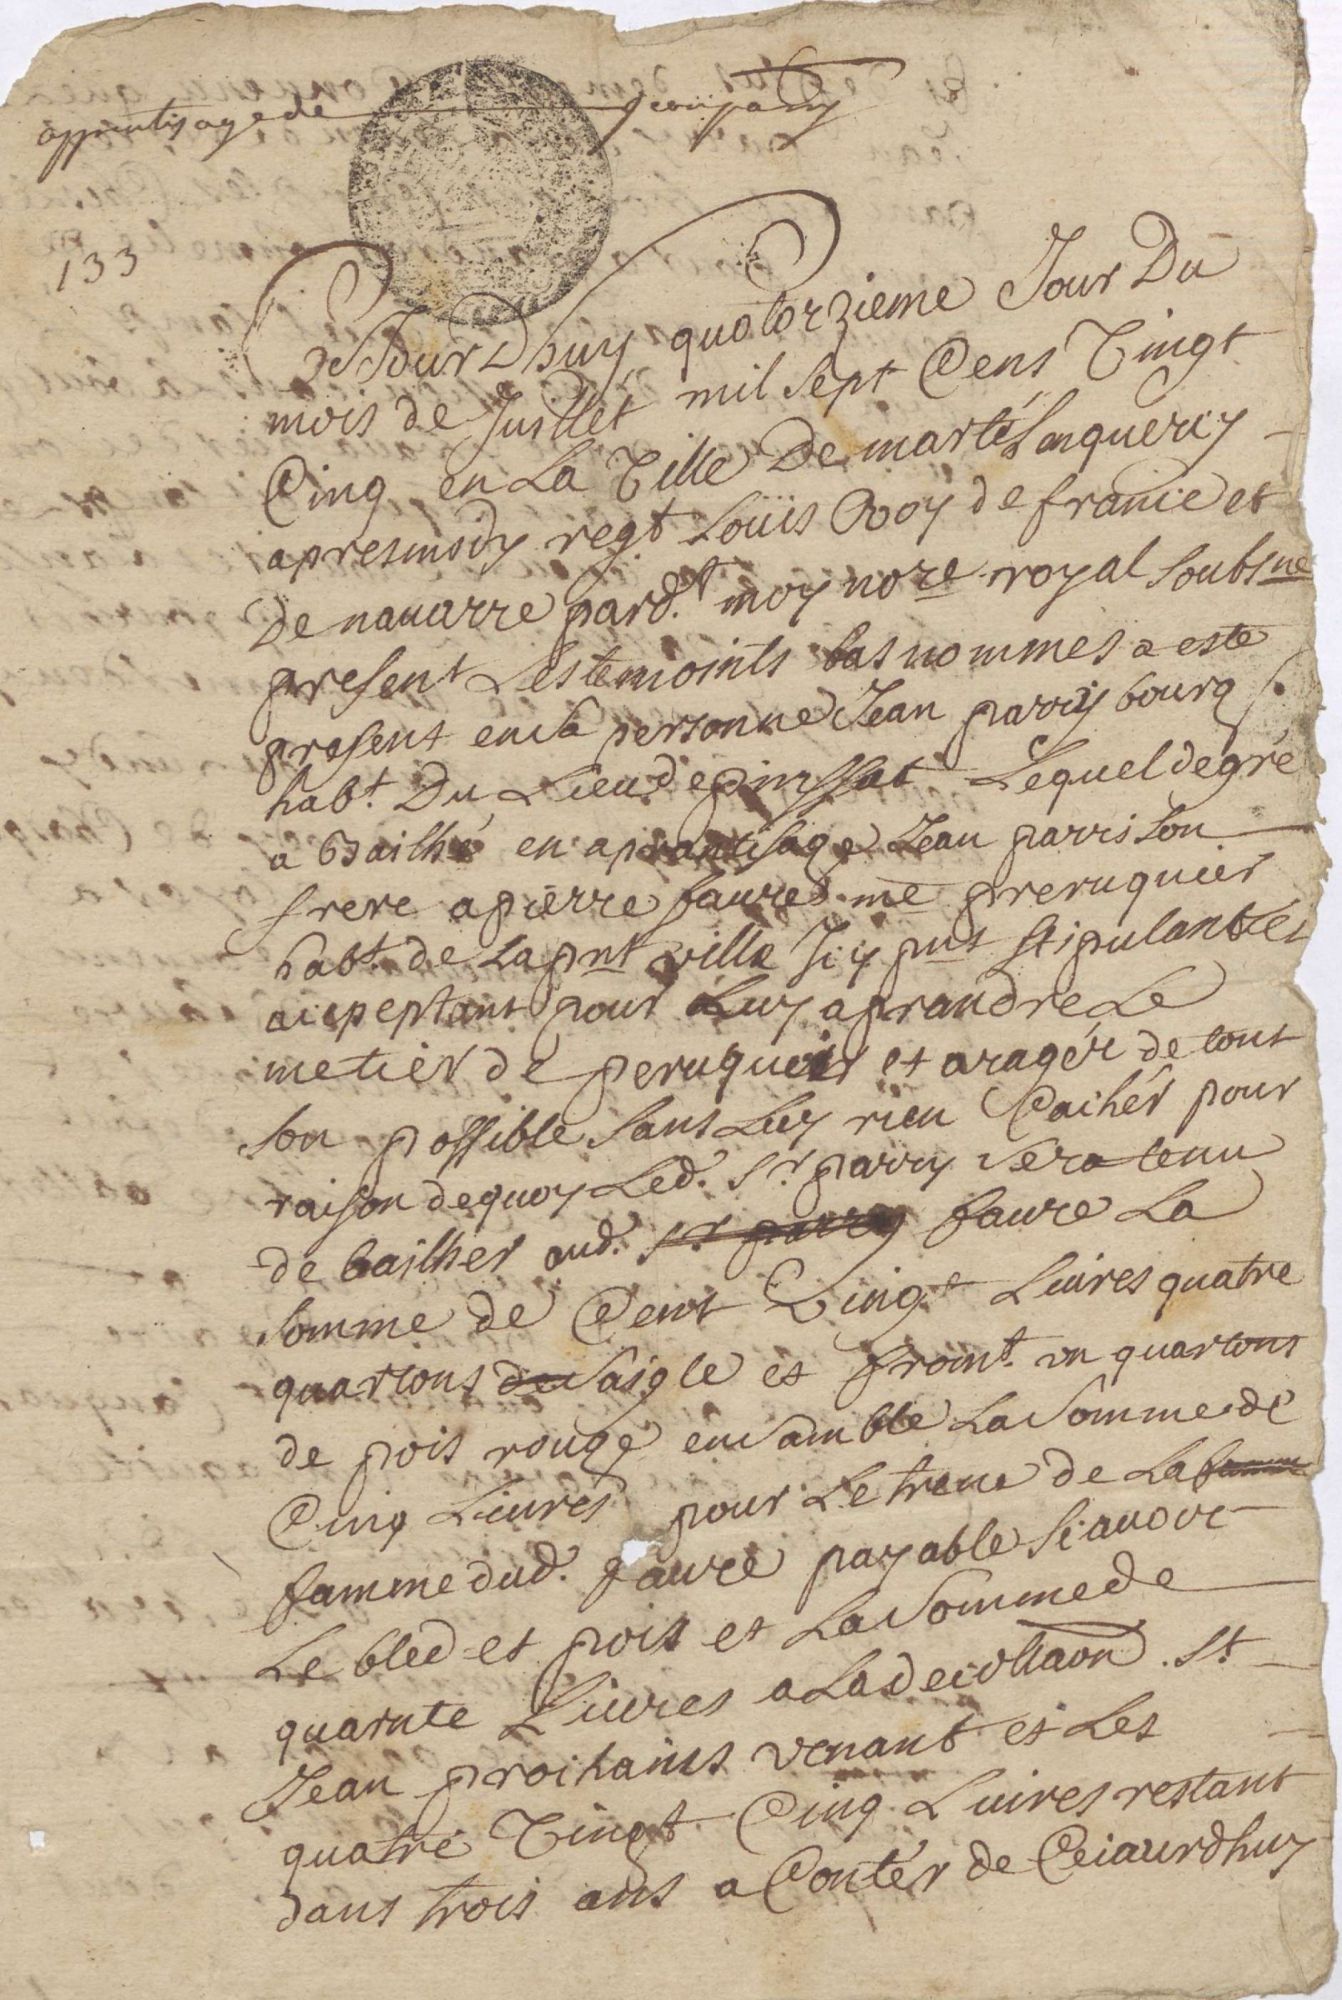 apprentisage de
133
Ce Jour Dhuy quatorzieme Jour Du
mois de Juillet mil sept Cens Vingt
Cinq en La Ville De martel en quercy
apres midy regt Loüis Roy de france et
De nauarre pard.t moy nore royal soubsne
present Les temoints bas nommes a este
present en sa personne Jean parry bourg s.
habt. Du Lieu de pinssac Lequel de gré
a Bailhé en aprantisage Jean parri son
frere a pierre faure me preruquier
habt. de la pnt ville Jiy pnt stipulant et
aicpeptant pour Luy aprandre Le
metier de peruquier et aragér de tout
son possible sans Luy rien Cachér pour
raison de quoy Led. sr. parry sera tenu
de bailher aud. sr parry faure La
somme de Cent Vingt Liures quatre
quartons de saigle et fromt. vn quartons
de pois rouge ensamble La somme de
Cinq Liures pour Letrene de La famme
famme dud. faure payable Sciauoir
Le bled et pois et La somme de
quarnte Liures a La decollaon St
Jean proihains venant et Les
quatre Vingt Cinq Liures restant
dans trois ans a Contér de Ceiaurdhuy